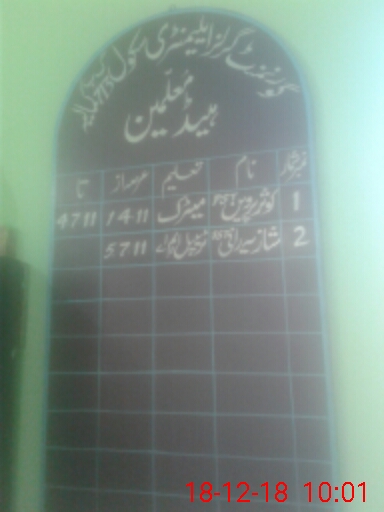 گورنمنٹ گرلز ایلیمنٹری سکول
ہیڈ معلّمین
نمبر شمار نام تعلیم عرصہ از تا
1 کوثر پروین PST میٹرک 1 4 11 4 7 11
2 شازیہ رانی 5 7 11
18-12-18 10:01